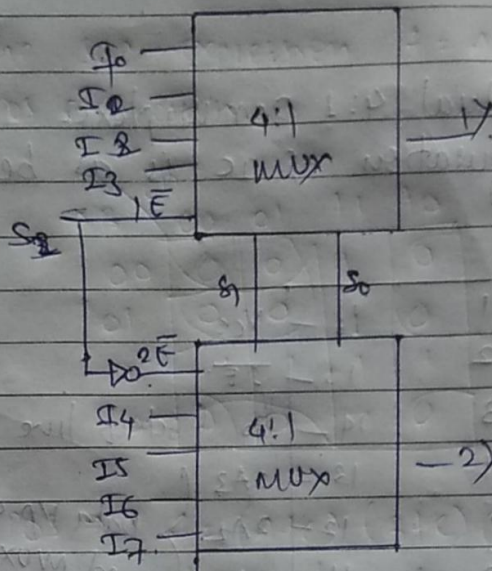 I0
I1
I2
I3
4:1
MUX
1Y
1E̅
S2
S1
S0
2E̅
I4
I5
I6
I7
4:1
MUX
2)